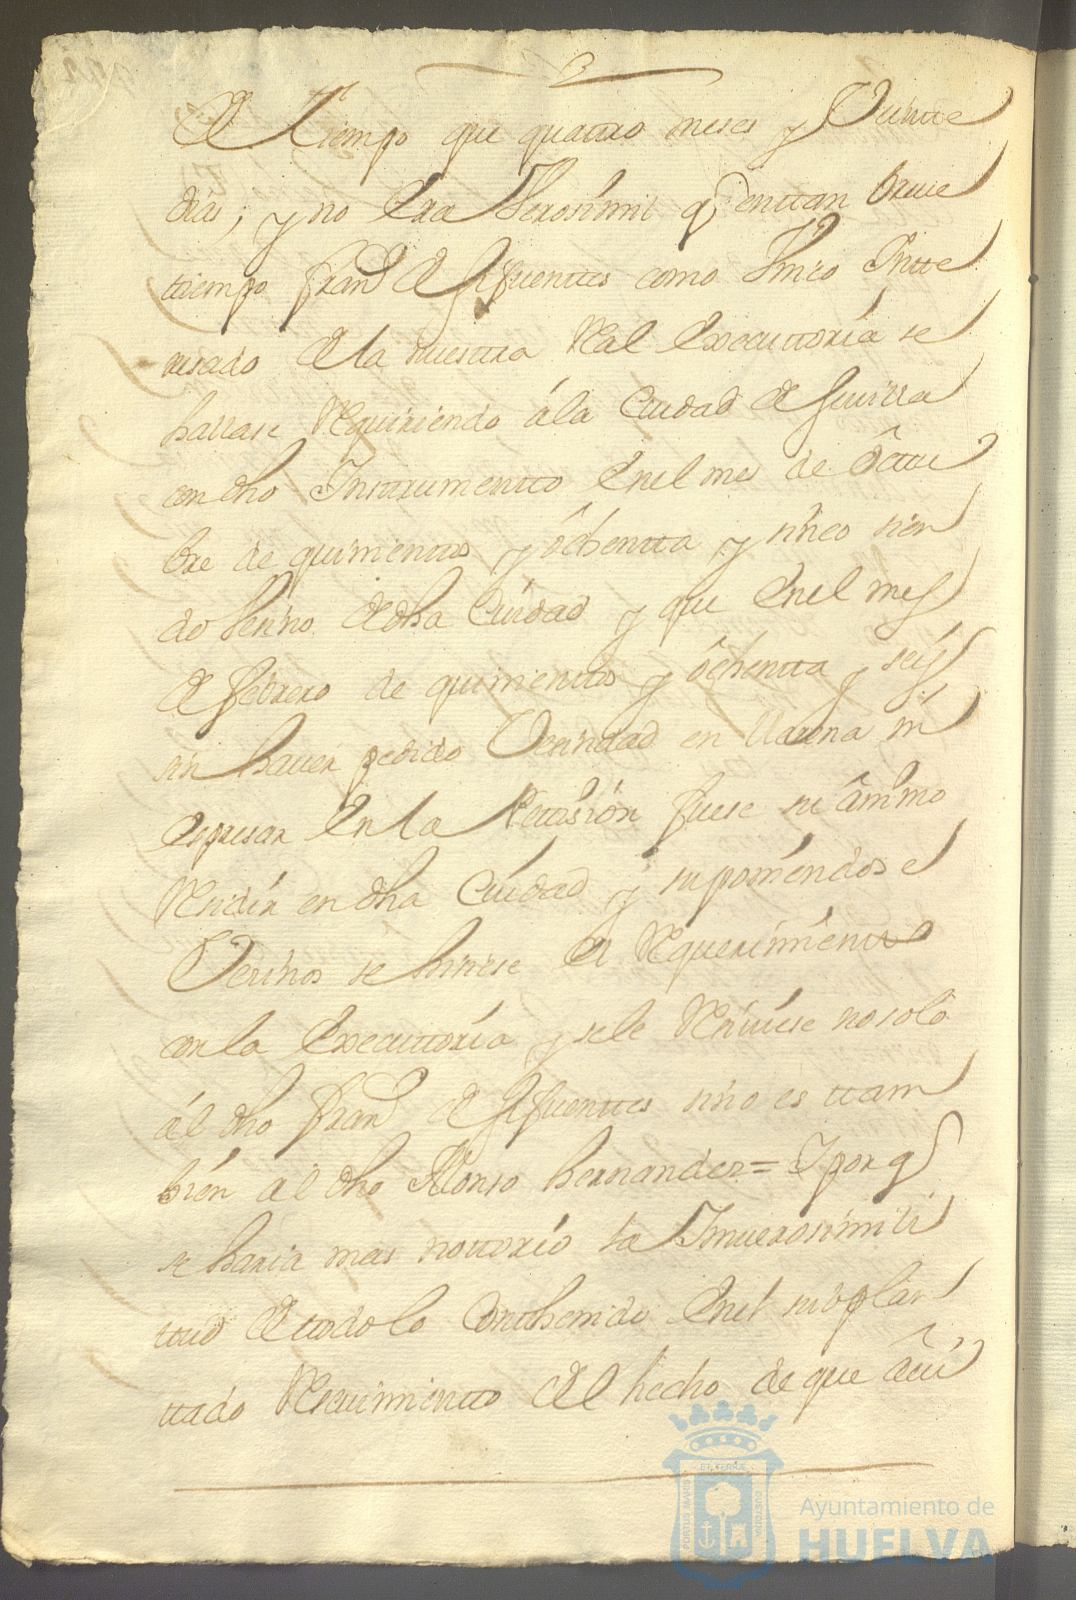 de tiempo que quattro meses y Veintte
dias; y no era Verosimil q̃ en ttan breve
tiempo Fran.co de Cifuenttes como Unico Intte
resado de la nuestra Real Executtoria se
hallase Requiriendo á la Ciudad de Sevilla
con dho Instrumentto en el mes de Octtu
bre de quinienttos y ôchentta y sinco sien
do Vecino de dha Ciudad y que en el mes
de febrero de quinienttos y ôchentta y seis
sin haver pedido Vecindad en Llerena ni
expresar en la Petision fuese su ânimo
Residir en dha Ciudad y suponiendose
Vecinos se hiciese el Requerimientto
con la Executtoria y se le Reciviese no solo
ál dho Fran.co de Cifuenttes sino es ttam
bien al dho Alonso Hernandez = Y por q̃
se haria mas nottorio la Inverosimili
ttud de ttodo lo Conthenido en el suplan
ttado Recivimientto el hecho de que aun
Ayuntamiento de
HUELVA